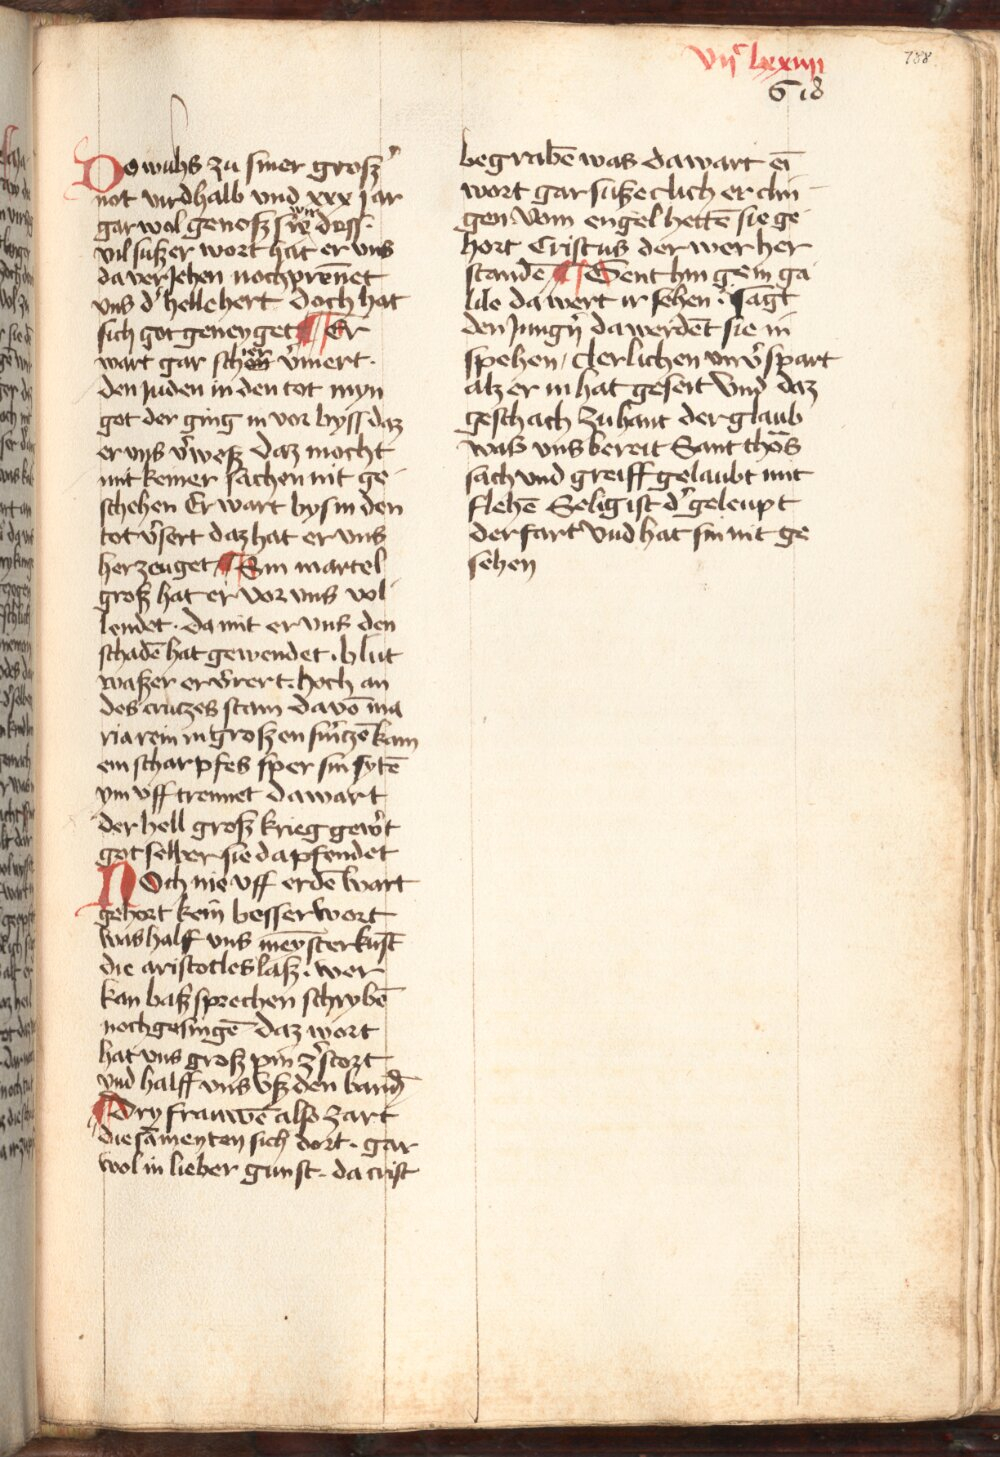 vijc lxxiiij
788
618
Do wuhs zu siner groszer
not virdhalb und xxx jar
gar wol genosz sin wir dess.
vil suszer wort hat er vns
da verjehen noch prennet
vns d' helle hert Doch hat
sich got geneyget Er
wart gar schier v'mert.
den Juden in den tot myn
got der ging in vor byss daz
er vns v'wesz daz mocht
mit keiner sachen nit ge
schehen Er wart bys in den
tot v'sert daz hat er vns
herzeuget Sin martel
grosz hat er vor vns vol
lendet. da mit er vns den
schadē hat gewendet. blut
waszer er v'rert. hoch an
des crutzes stam da vō ma
ria rein in groszen sm'tzē kam
ein scharpfes sper sin sytē
ym vff trennet da wart
der hell grosz krieg gew't
got selber sie da pfendet
Noch nie vff erdē wart
gehort kein besser wort
was half vns meysterkunst
die aristotles lasz. wer
kan basz sprechen schrybē
noch gesingē daz wort
hat vns grosz pin z'stort
vnd halff vns vsz den band
Dry frauwē also zart
die samenten sich dort. gar
wol in lieber gunst. da crist
begrabē was da wart ein
wort gar suszeclich erclin
gen. Vom engel hettē sie ge
hort Cristus der wer her
standē Gent hin gein ga
lile da wert ir sehen. sagt
den Jung'n da werdēt sie in
spehen / clerlichen vnv'spart
alz er in hat geseit Vnd daz
geschach zu hant der glaub
wasz vns bereit Sant thōs
sach vnd greiff gelaubt mit
flehē Selig ist d' geleupt
der fart vnd hat sin nit ge
sehen